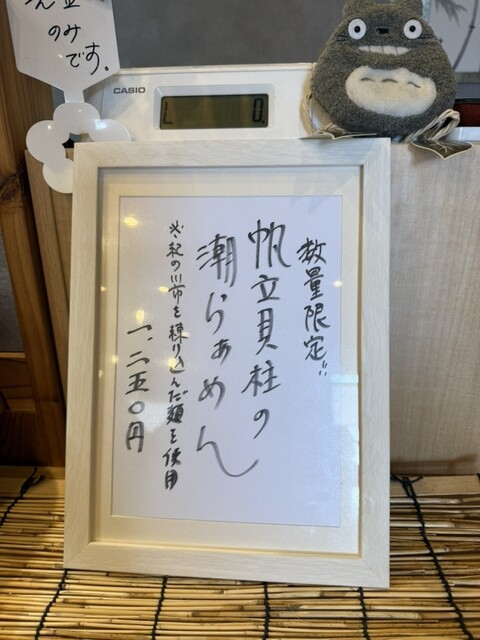 のみ
です。
CASIO
0.
数量限定!!
帆立貝柱の
潮らぁめん
※紀の川市を練り込んだ麺を使用
一、二五〇円